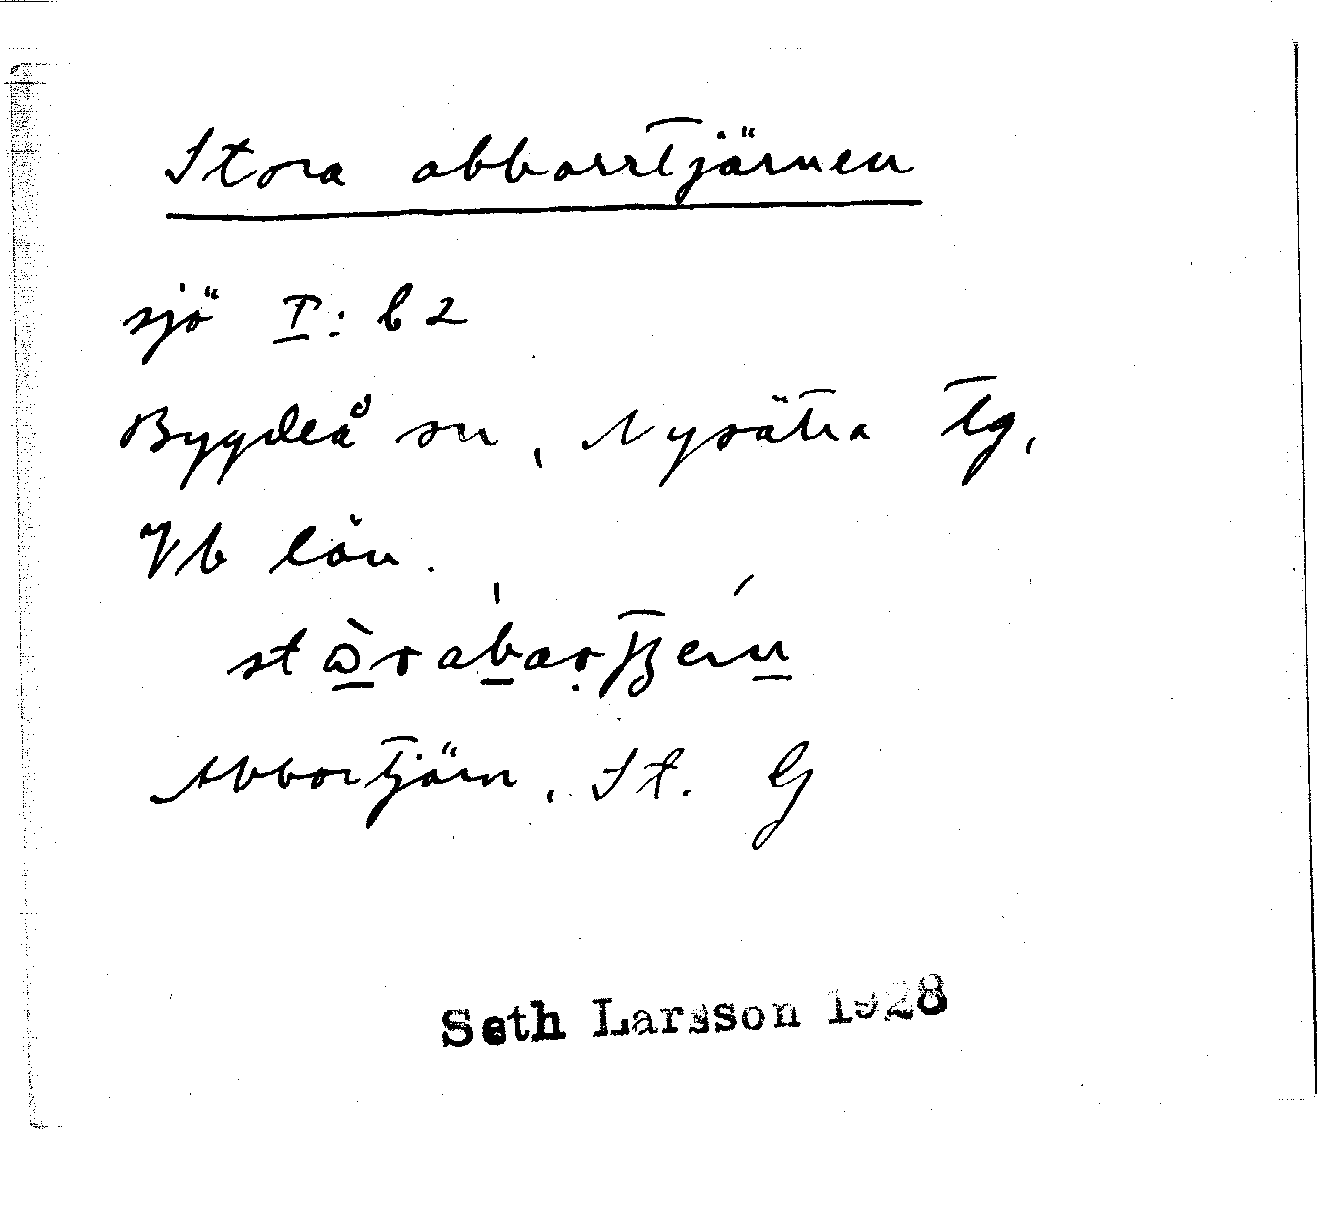 Stora abborrtjärnen
sjö I: b 2
Bygdeå sn, Nysätra tg,
Vb län.
Abbortjärn, St. G
Seth Larsson 1928